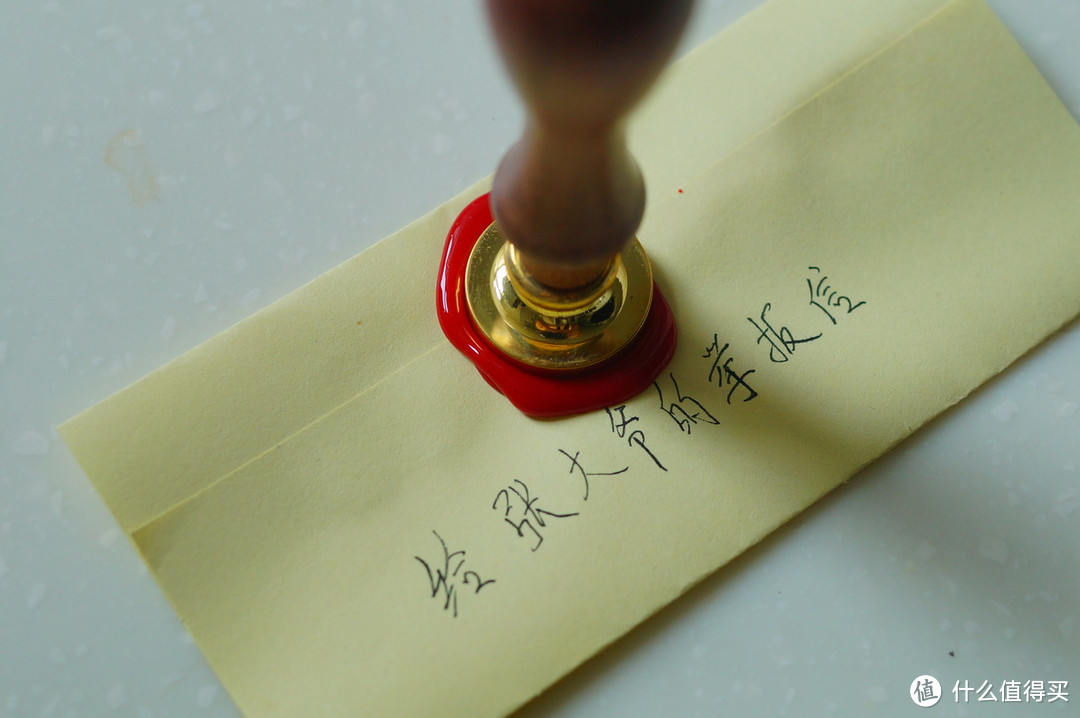 给張大爷的举报信
值 什么值得买